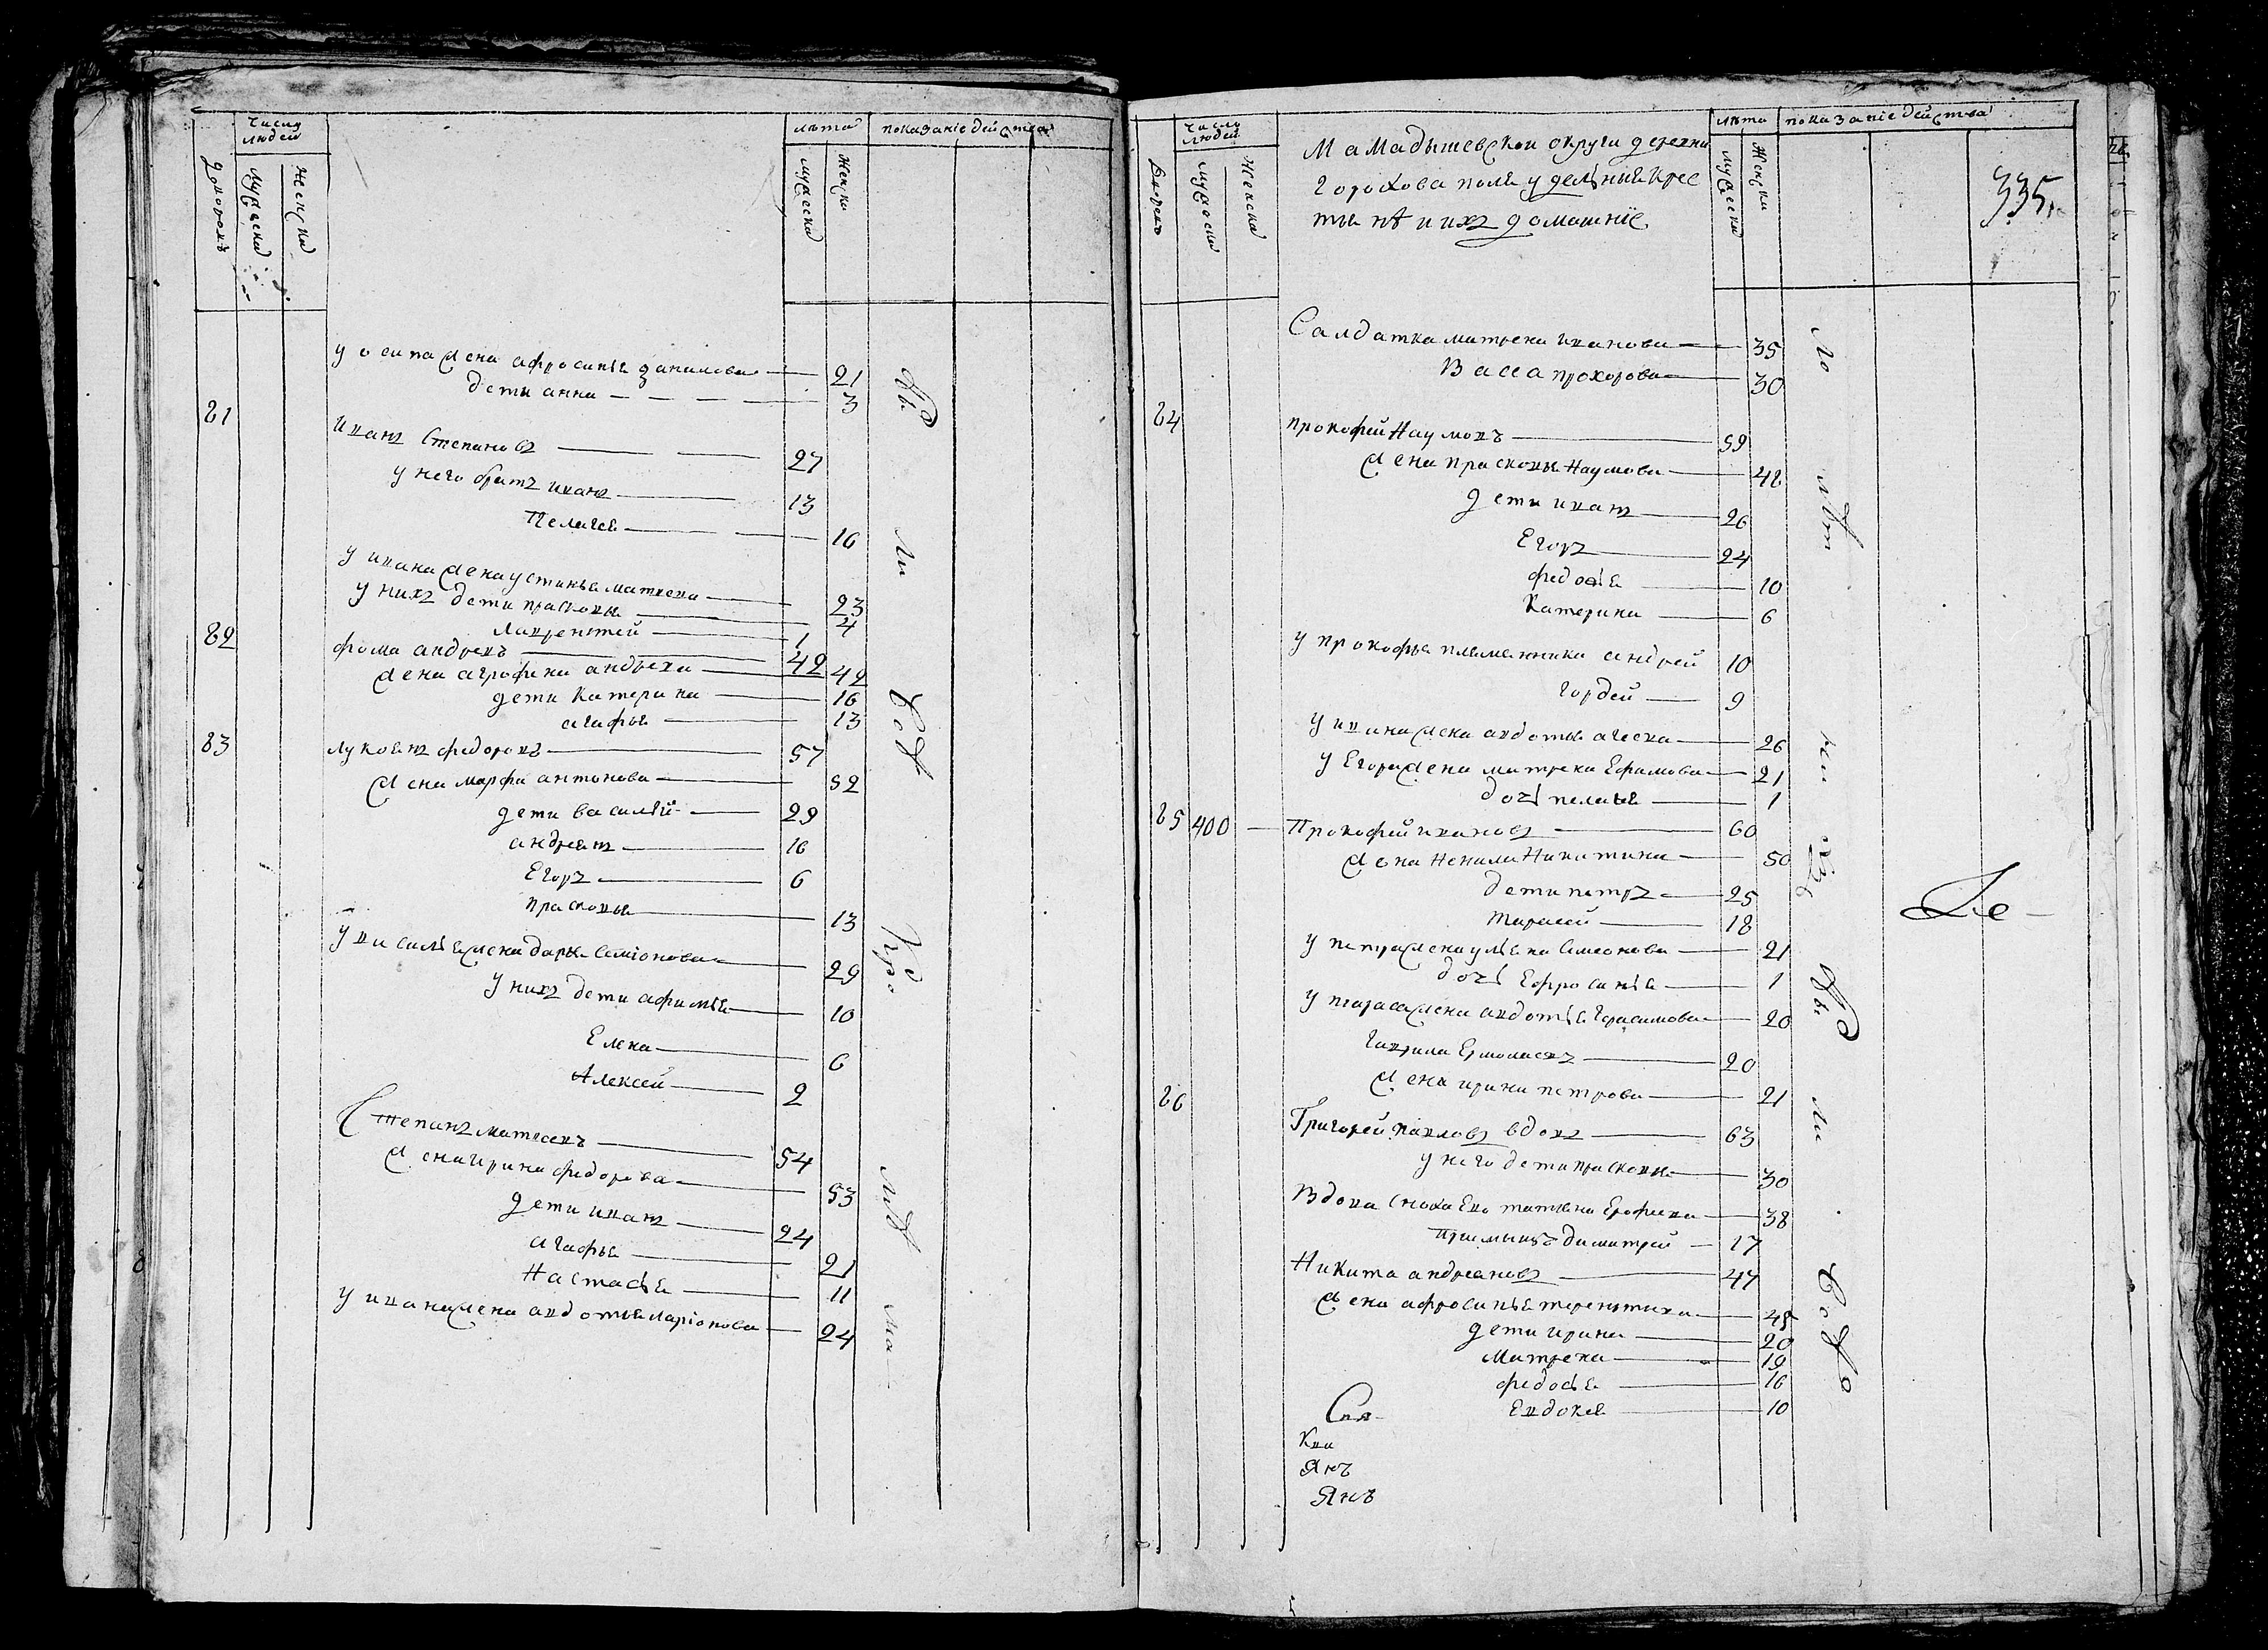 число людей
лѣта
показание действа
дворовъ
мужеска
женска
мужеска
женска
у осипа жена афросинья данилова — 21
дети анна — 3
81
иванъ степановъ — 27
у него братъ иванъ — 13
Пелагея — 16
у ивана жена устинья матвеева — 23
у нихъ дети прасковья — 4
лаврентей — 1
82
фома андреевъ — 42
жена аграфена андреева — 42
дети катерина — 16
агафья — 13
83
лукоянъ федоровъ — 57
жена марфа антонова — 52
дети василей — 29
андреянъ — 16
Егоръ — 6
прасковья — 13
у василья жена дарья семіонова — 29
у нихъ дети афимья — 10
Елена — 6
Алексей — 2
Степанъ матвеевъ — 54
жена ирина федорова — 53
дети иванъ — 24
агафья — 21
Настасья — 11
у ивана жена авдотья ларіонова — 24
число людей
Мамадышевской округи деревни
горохова поля удельные крес
тьянѣ и ихъ домашніе
лѣта
показаніе действа
335
мужеска
женска
мужеска
женска
Салдатка матрена иванова — 35
Васса прохорова — 30
84
прокофей Наумовъ — 59
жена прасковья Наумова — 48
дети иванъ — 26
Егоръ — 24
федосья — 10
Катерина — 6
у прокофья племянники андрей 10
гордей — 9
у ивана жена авдотья — 26
у Егора жена матрена Ефимова — 21
дочь пелагея — 1
85 400 — Прокофей ивановъ — 60
жена Ненила Никитина — 50
дети петръ — 25
тарасей — 18
у петра жена ульяна симеонова — 21
дочь Ефросинья — 1
у тараса жена авдотья герасимова — 20
гаврила Ермолаевъ — 20
жена ирина петрова — 21
86
Григорей павловъ вдовъ — 63
у него дети прасковья — 30
Вдова сноха Ево татьяна Ерофеева — 38
приемышъ димитрей — 17
Никита андреановъ — 47
жена афросинья терентиева — 45
дети ирина — 20
матрена — 19
федосья — 16
Евдокея — 10